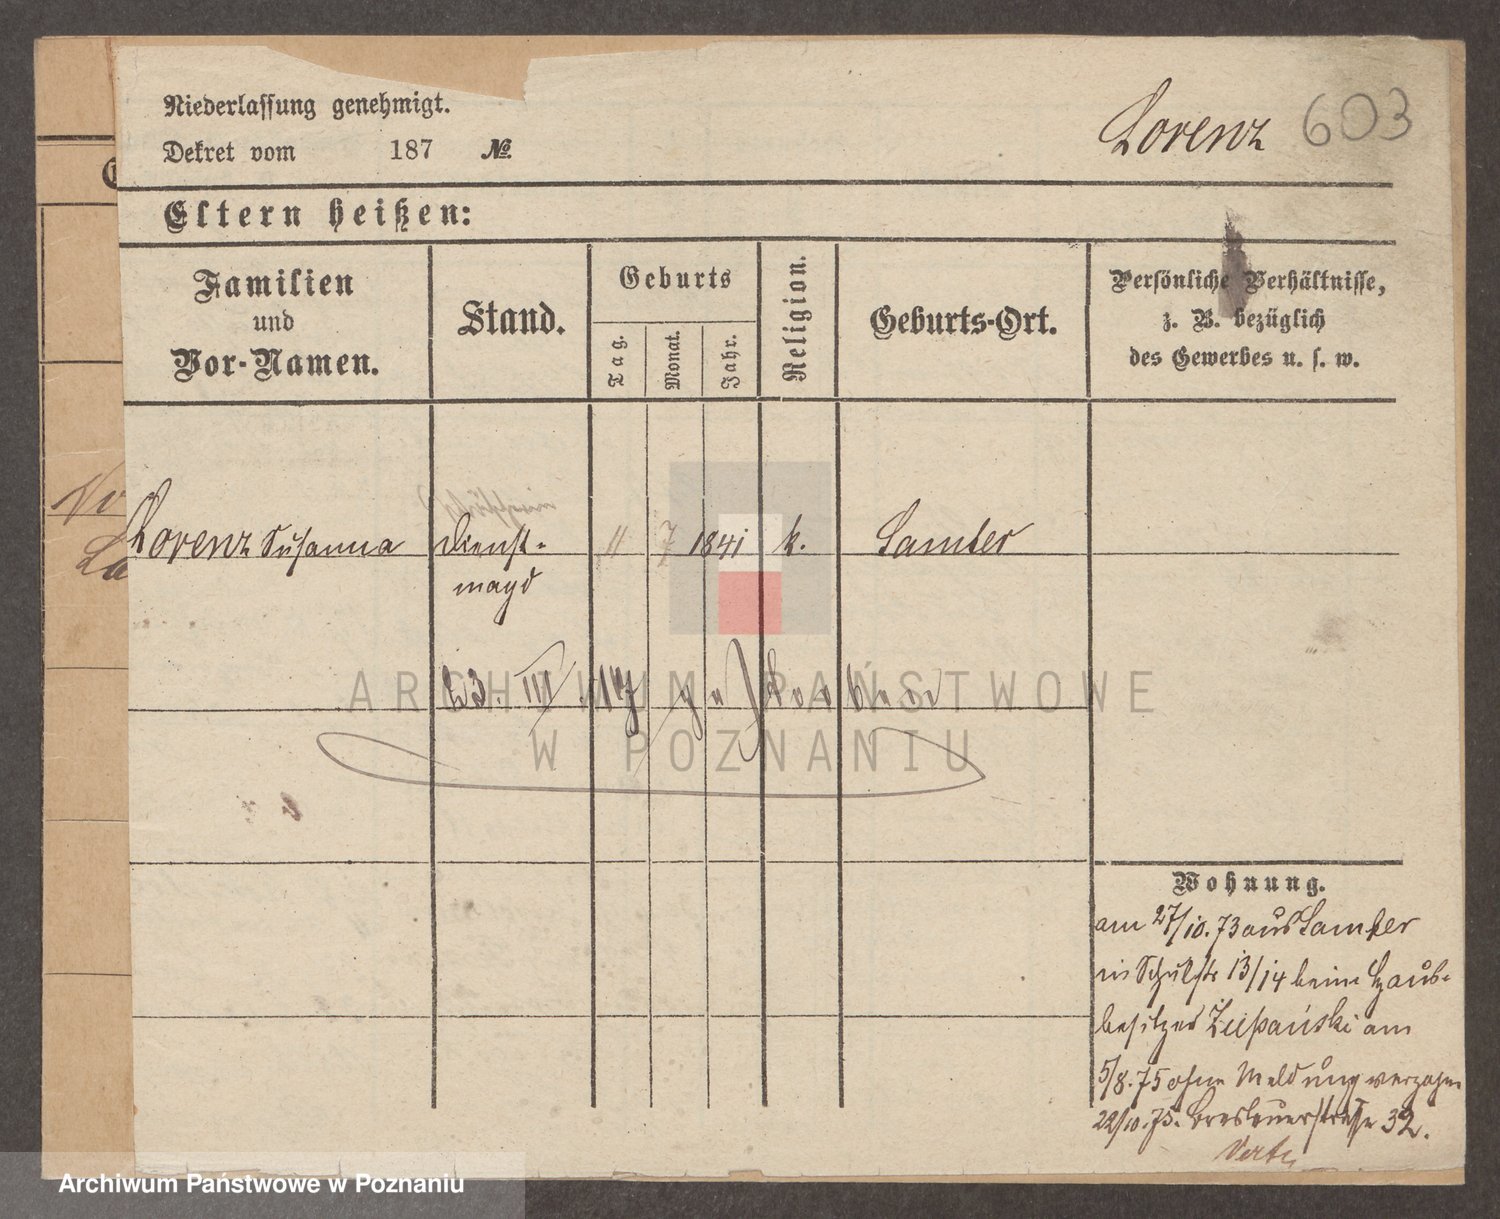 Niederlassung genehmigt.
Dekret vom 187 №
Lorenz 603
Eltern heißen:
Familien
und
Vor-Namen.
Stand.
Geburts
Tag.
Monat.
Jahr.
Religion.
Geburts-Ort.
Persönliche Verhältnisse,
z. B. bezüglich
des Gewerbes u. s. w.
Lorenz Susanna
Dienst-
magd
11 7 1841 k. Samter
23. III. 17 gestorben
Wohnung.
am 27/10. 73 aus Samter
in Schulstr 13/14 beim Haus-
besitzer Zupański am
5/8. 75 ohne Meldung verzogen
22/10. 75. Breslauerstraße 32.
Verte
ARCHIWUM PAŃSTWOWE
W POZNANIU
Archiwum Państwowe w Poznaniu